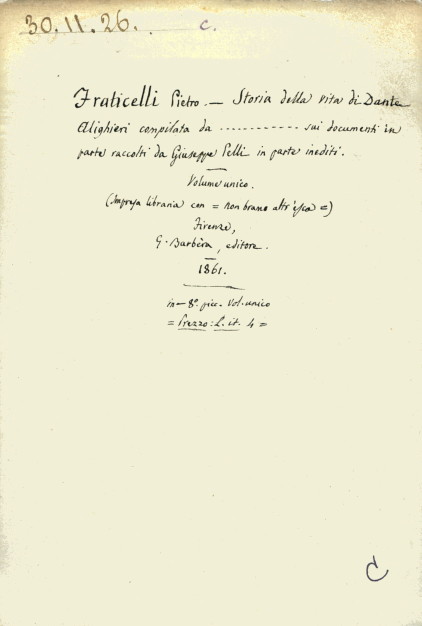 30.11.26. C.
Fraticelli Pietro. — Storia della vita di Dante
Alighieri compilata da ............ sui documenti in
parte raccolti da Giuseppe Pelli in parte inediti.
Volume unico.
(Impresa libraria con = non bramo altr'esca =)
Firenze,
G. Barbèra, editore.
1861.
in-8º. picc. Vol. unico
= Prezzo: L. it. 4 =
C